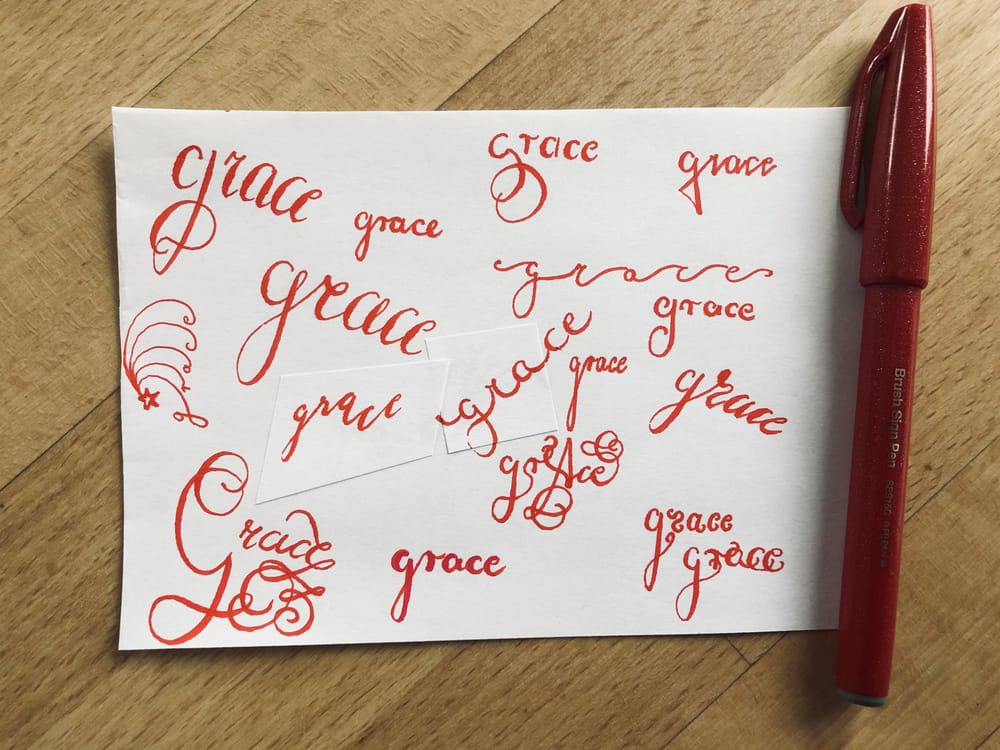 grace
grace
grace
grace
grace
grace
grace
grace
grace
grace
grace
grace
grAce
Grace
grace
grace
grace
Brush Sign Pen SES15C